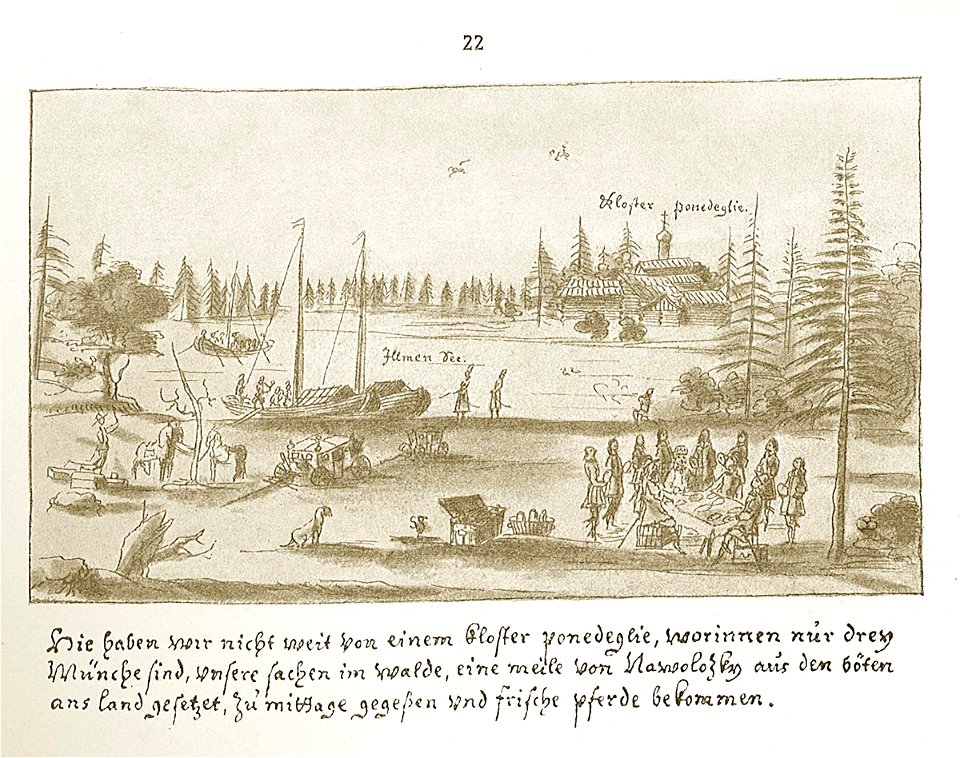 22
Kloster ponedeglie.
Illmen See.
Hie haben wir nicht weit von einem kloster ponedeglie, worinnen nur drey
Münche sind, unsere sachen im walde, eine meile von Nawolozky aus den böten
ans land gesetzet, zu mittage gegeßen und frische pferde bekommen.